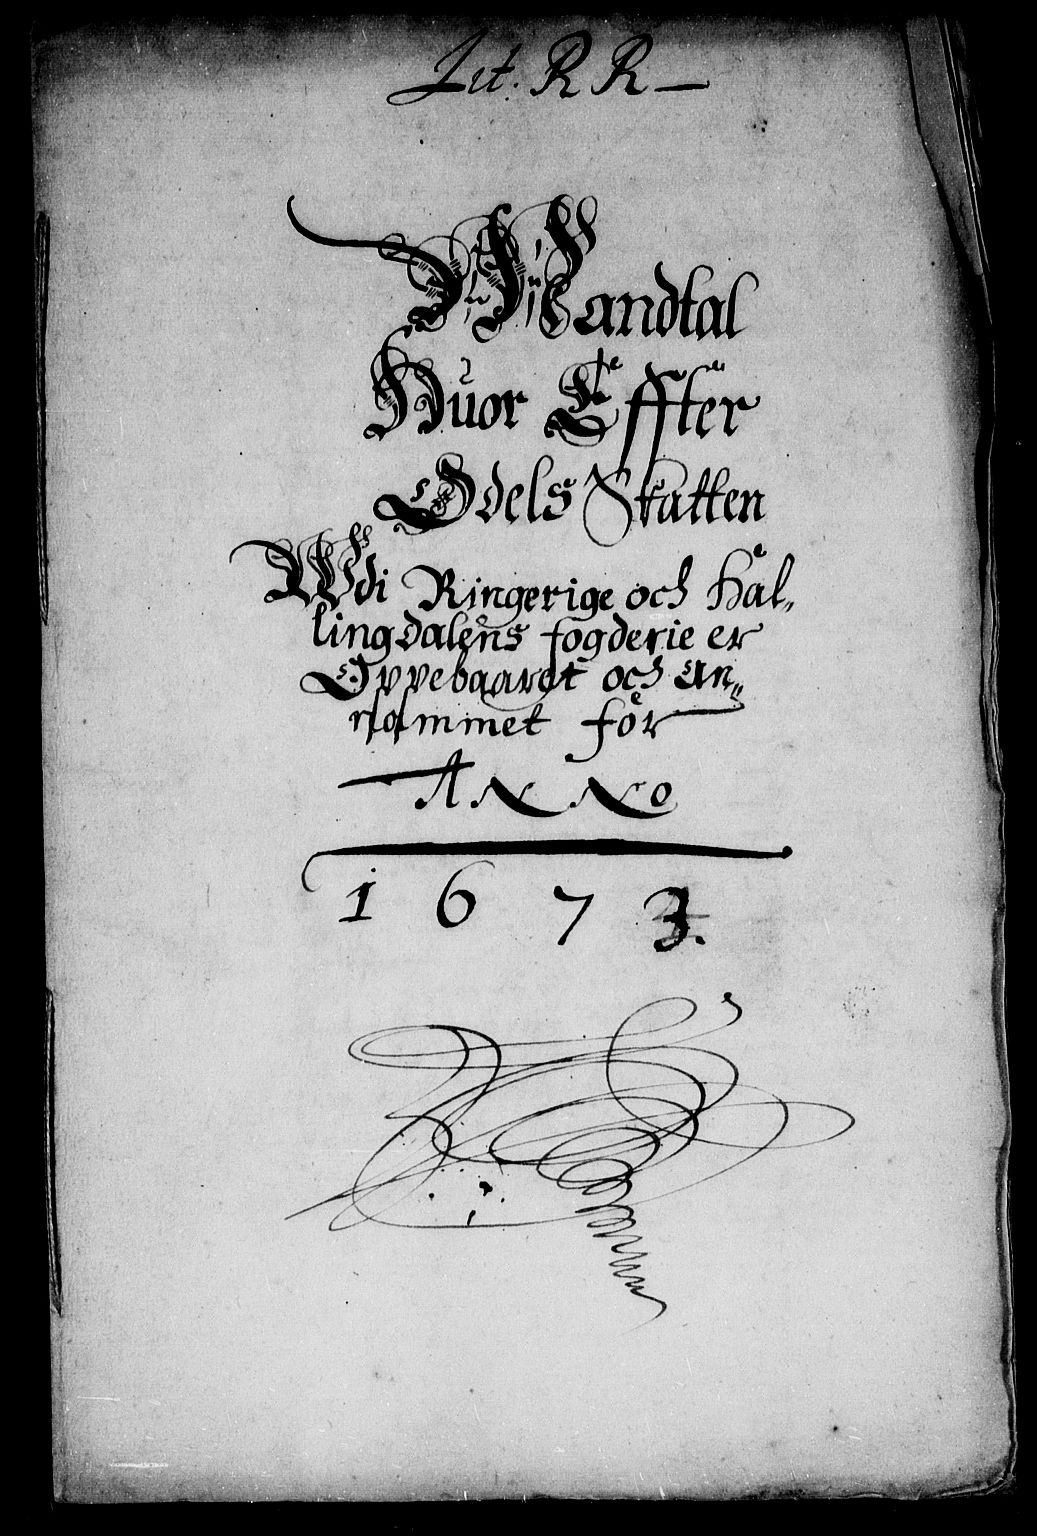 Lit. R R
Mandtal
Huor Effter
Odels Skatten
Udi Ringerige och Hal„
lingdalens fogderie er
Oppebaaret och An„
nammet for
ANNo
1673.